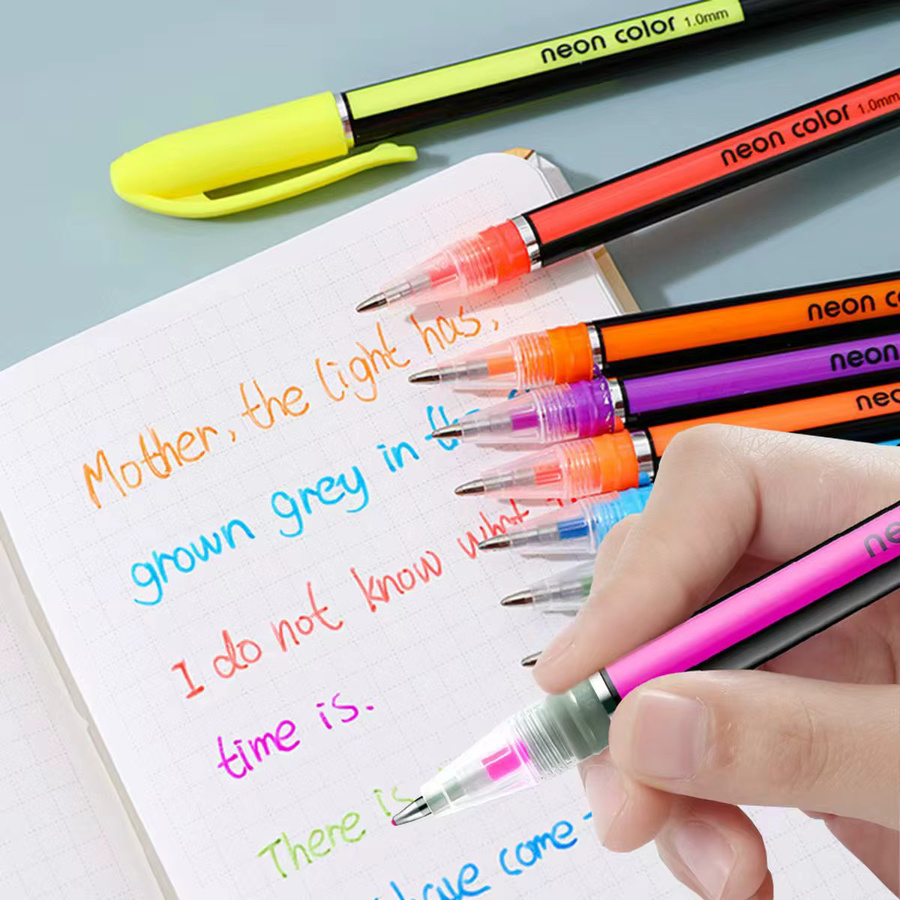 neon color 1.0mm
neon color 1.0mm
neon
neon
Mother, the light has,
grown grey in
I do not know what
time is.
There is
have come -